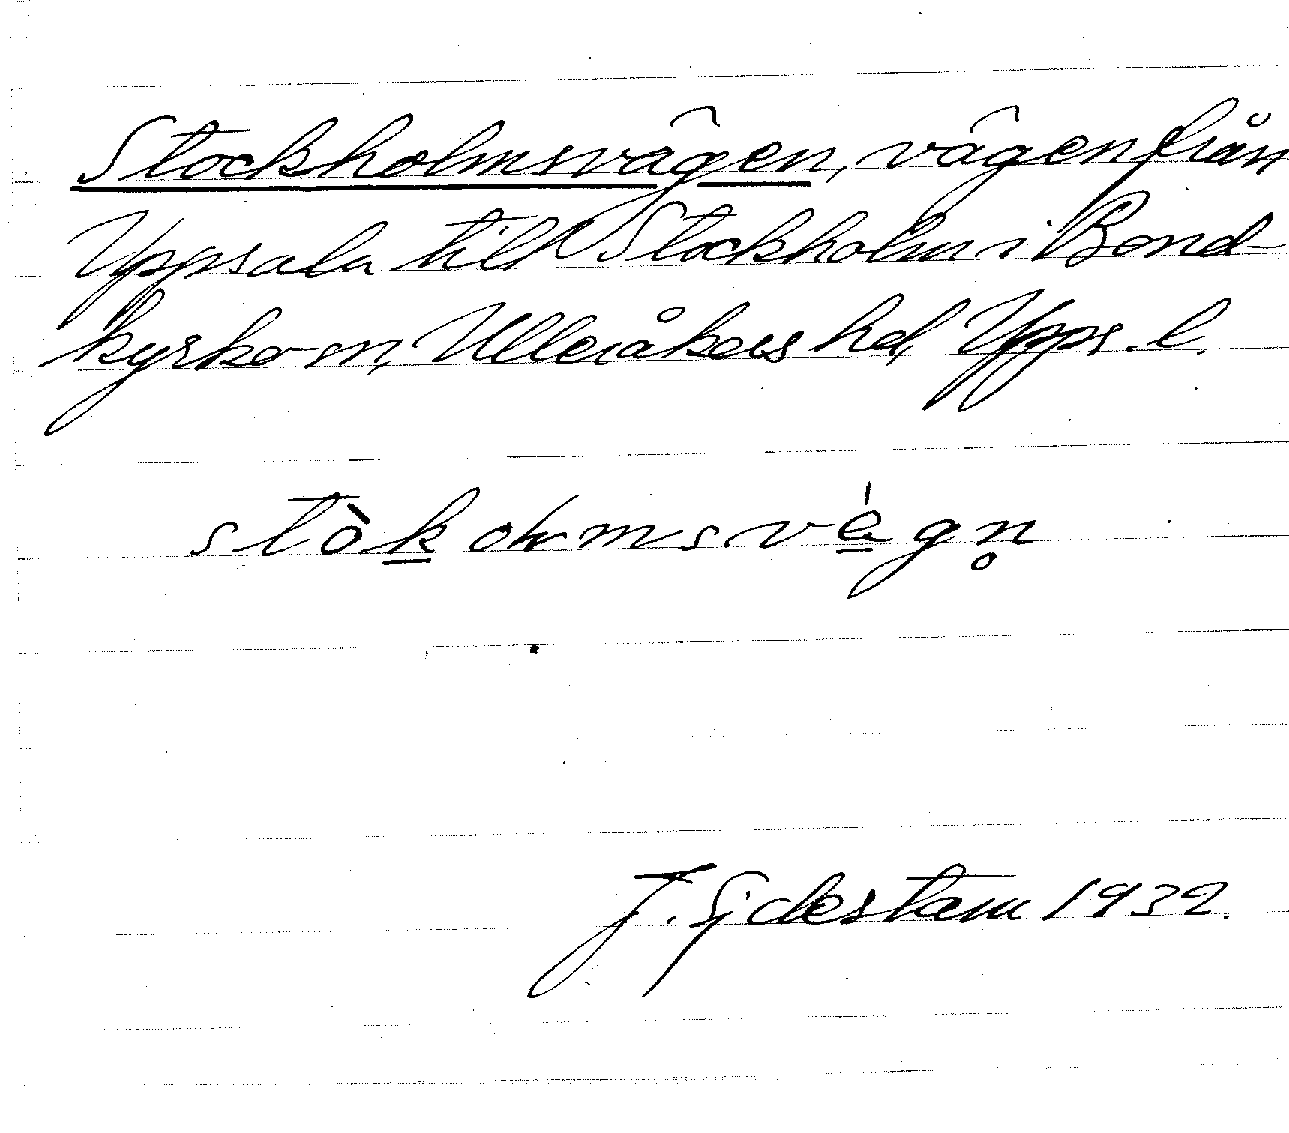 Stockholmsvägen, vägen från
Uppsala till Stockholm i Bond-
kyrko sn, Ulleråkers hd, Upps. l.
stòk̲ohmsvègn̥
J. Sjdestam 1932.